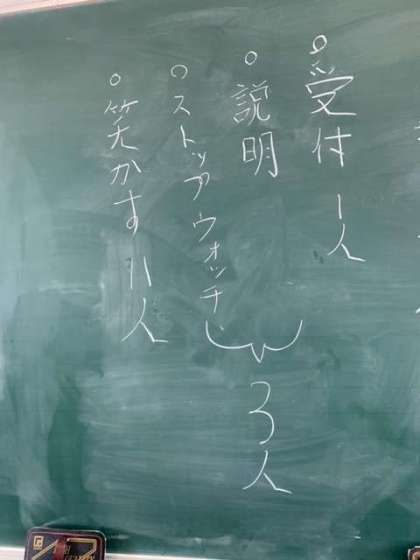 ○受付 1人
○説明
○ストップウォッチ
3人
○笑かす 11人